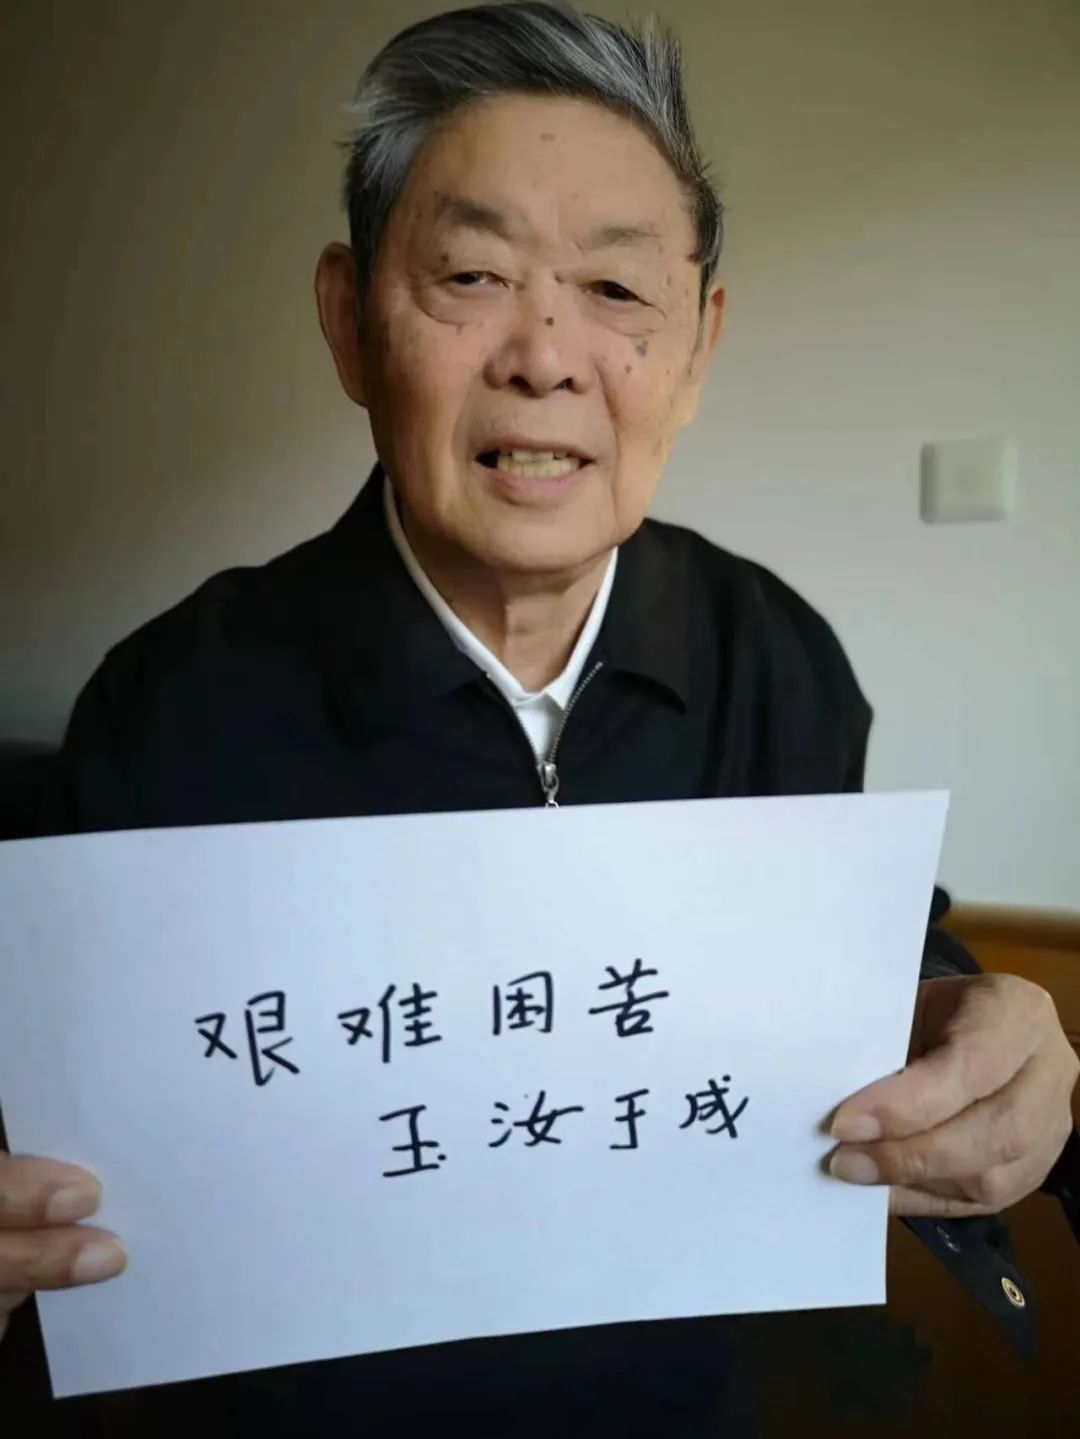 艰难困苦
玉汝于成